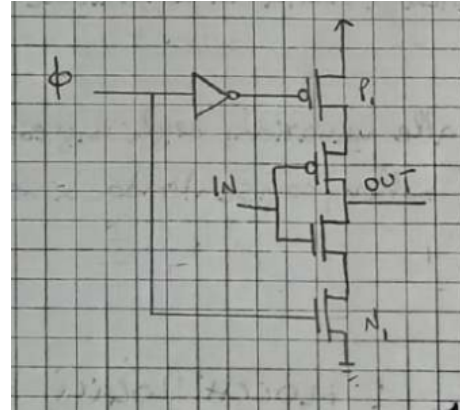 ϕ
P₁
IN
OUT
N₁